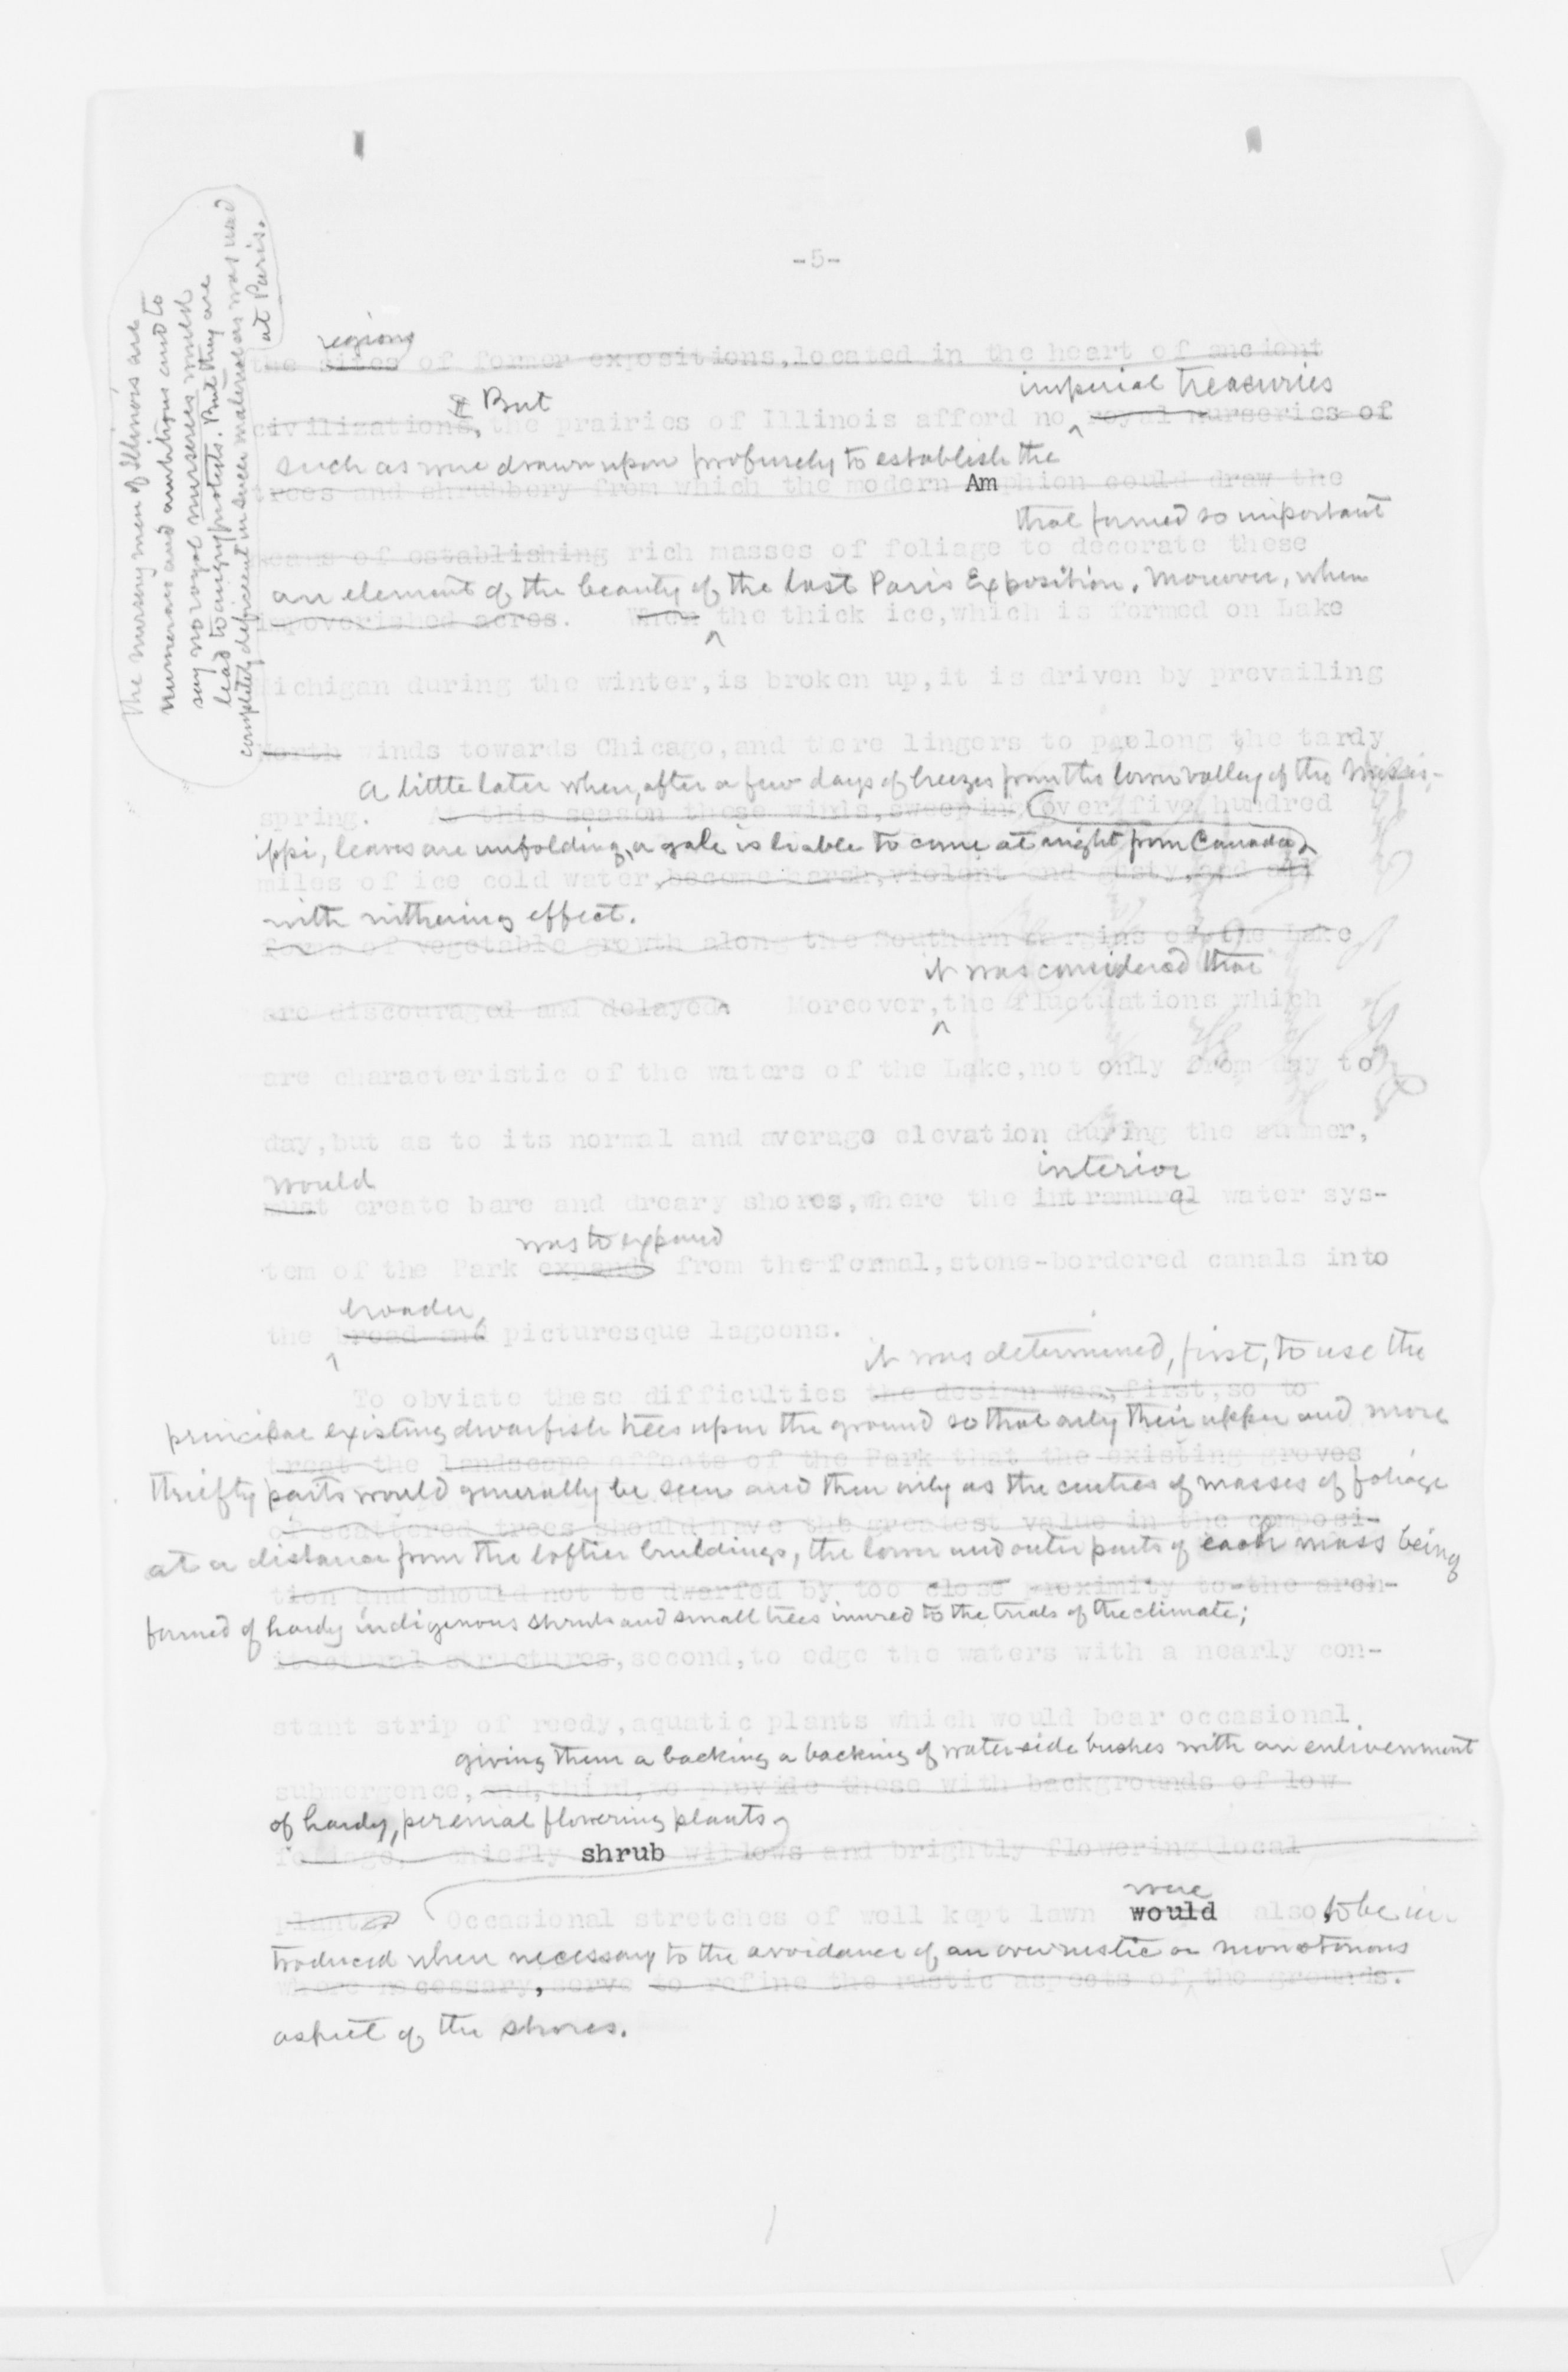 -5-
regions
the sites of former expositions, located in the heart of ancient
But
imperial treasuries
civilizations, the prairies of Illinois afford no royal nurseries of
such as were drawn upon profusely to establish the
trees and shrubbery from which the modern Amphion could draw the
that formed so important
means of establishing rich masses of foliage to decorate these
an element of the beauty of the last Paris Exposition. Moreover, when
impoverished acres. When the thick ice, which is formed on Lake
Michigan during the winter, is broken up, it is driven by prevailing
North winds towards Chicago, and there lingers to prolong the tardy
A little later when, after a few days of breezes from the lower valley of the Missis-
spring. At this season these winds, sweeping over five hundred
ippi, leaves are unfolding, a gale is liable to come at night from Canada,
miles of ice cold water, become harsh, violent and gusty, and all
with withering effect.
forms of vegetable growth along the Southern margins of the Lake
it was considered that
are discouraged and delayed. Moreover, the fluctuations which
are characteristic of the waters of the Lake, not only from day to
day, but as to its normal and average elevation during the summer,
would
interior
must create bare and dreary shores, where the intramural water sys-
was to expand
tem of the Park expands from the formal, stone-bordered canals into
broader,
the broad and picturesque lagoons.
it was determined, first, to use the
To obviate these difficulties the design was, first, so to
principal existing dwarfish trees upon the ground so that only their upper and more
treat the landscape effects of the Park that the existing groves
thrifty parts would generally be seen and then only as the centres of masses of foliage
of scattered trees should have the greatest value in the composi-
at a distance from the loftier buildings, the lower and outer parts of each mass being
tion and should not be dwarfed by too close proximity to the arch-
formed of hardy indigenous shrubs and small trees inured to the trials of the climate;
itectural structures, second, to edge the waters with a nearly con-
stant strip of reedy, aquatic plants which would bear occasional
giving them a backing a backing of waterside bushes with an enlivenment
submergence, and, third, to provide these with backgrounds of low
of hardy, perenial flowering plants
foliage, chiefly shrub willows and brightly flowering local
were
plants. Occasional stretches of well kept lawn would also, to be in
troduced when necessary to the avoidance of an over rustic or monotonous
where necessary, serve to refine the rustic aspects of the grounds.
aspect of the shores.
The nursery men of Illinois are
numerous and ambitious and to
say no royal nurseries would
lead to angry protests. But they are
completely deficient in such material as was used
at Paris.